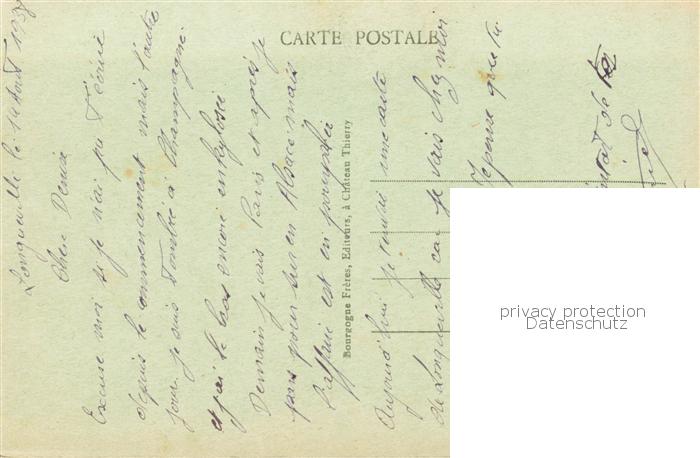 CARTE POSTALE
Bourgogne Frères, Editeurs, à Château Thierry
Longueville le 14 Août 193
Cher Denise
Excuse moi si je n'ai pu t'écrire
depuis le commencement mais l'autre
jour je suis tombé à Champagne
et j'ai le bras encore enkylosé
Demain je vais Paris et après je
pars pour sur en Alsace mais
l'affaire est en pourparler
Aujourd'hui je t'envoie une carte
de Longueville car je vais chez moi
Je pense que tu
privacy protection
Datenschutz